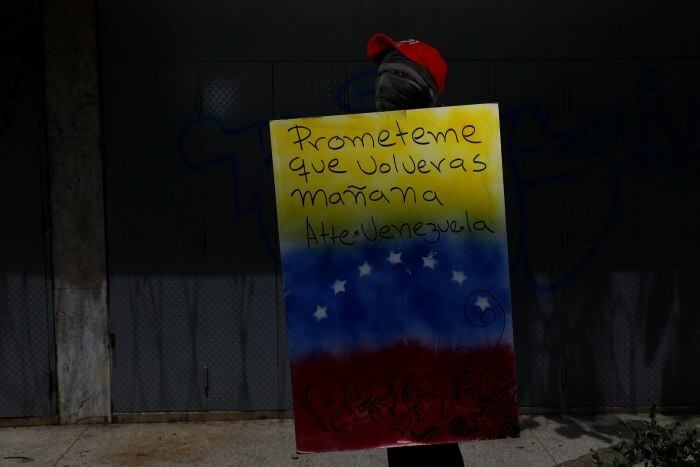 Prometeme
que volveras
mañana
Atte. Venezuela